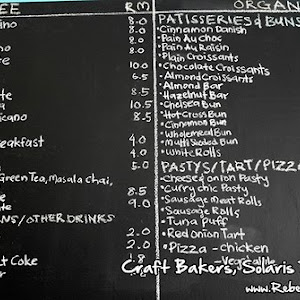 EE RM
ano 8.0
8.0
8.0
10.0
6.5
te 8.0
a 10.5
icano 8.5
reakfast 4.0
4.0
5.0
Green Tea, Masala Chai,
8.5
e 9.0
NS/OTHER DRINKS
2.0
2.0
t Coke 1.8
ORGAN
PATISSERIES & BUNS
• Cinnamon Danish
• Pain Au Choc
• Pain Au Raisin
• Plain Croissants
• Chocolate Croissants
• Almond Croissants
• Almond Bar
• Hazelnut Bar
• Chelsea Bun
• Hot Cross Bun
• Cinnamon Bun
• Wholemeal Bun
• Multi Seeded Bun
• White Rolls
PASTYS/TART/PIZZA
• Cheese & onion Pasty
• Curry chic Pasty
• Sausage Meat Rolls
• Sausage Rolls
• Tuna Puff
• Red Onion Tart
• Pizza - chicken
- Vegetable
Craft Bakers, Solaris
www.Rebe